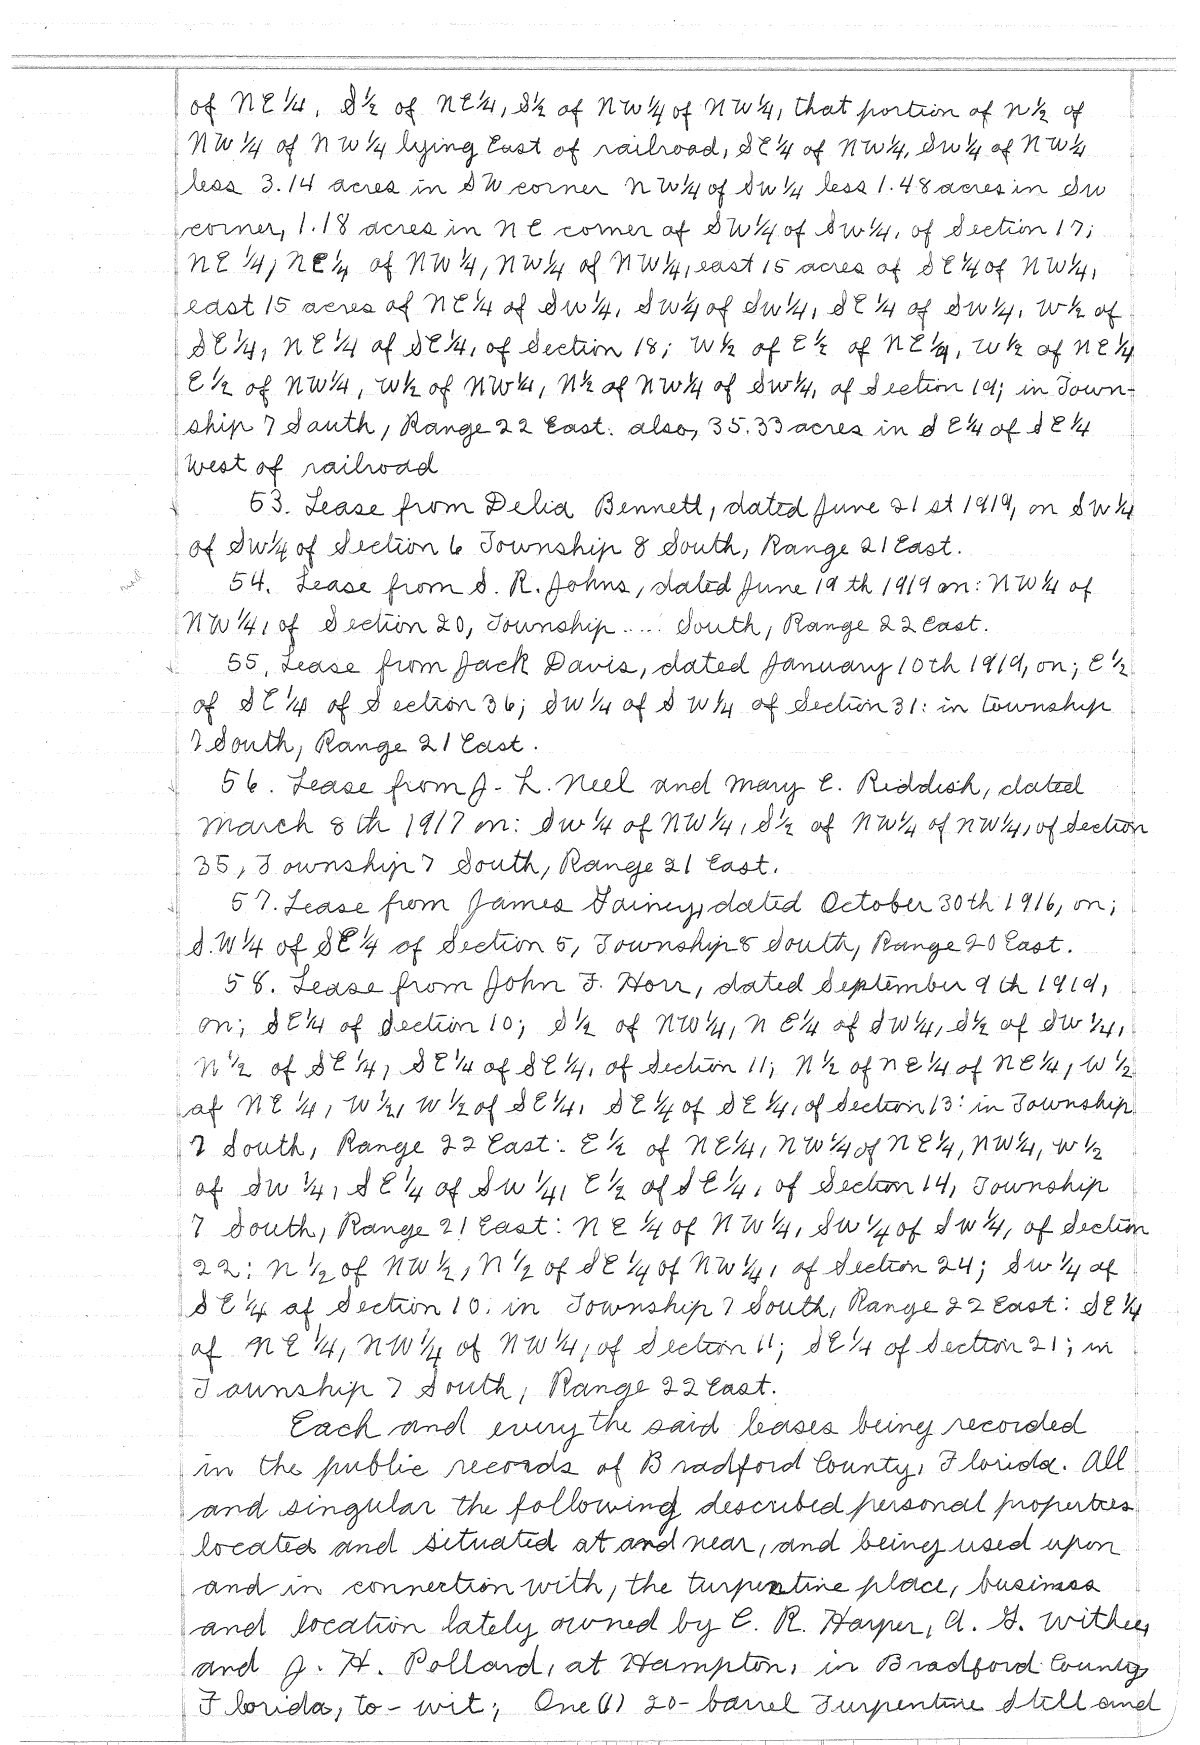 of NE¼, S½ of NE¼, S½ of NW¼ of NW¼, that portion of N½ of
NW¼ of NW¼ lying East of railroad, SE¼ of NW¼, SW¼ of NW¼
less 3.14 acres in SW corner NW¼ of SW¼ less 1.48 acres in SW
corner, 1.18 acres in NE corner of SW¼ of SW¼, of Section 17;
NE¼, NE¼ of NW¼, NW¼ of NW¼, east 15 acres of SE¼ of NW¼,
east 15 acres of NE¼ of SW¼, SW¼ of SW¼, SE¼ of SW¼, W½ of
SE¼, NE¼ of SE¼, of Section 18; W½ of E½ of NE¼, W½ of NE¼
E½ of NW¼, W½ of NW¼, N½ of NW¼ of SW¼, of Section 19; in Town-
ship 7 South, Range 22 East. also, 35.33 acres in SE¼ of SE¼
West of railroad
53. Lease from Delia Bennett, dated June 21 st 1919, on SW¼
of SW¼ of Section 6 Township 8 South, Range 21 East.
54. Lease from S. R. Johns, dated June 19 th 1919 on: NW¼ of
NW¼, of Section 20, Township .... South, Range 22 East.
55, Lease from Jack Davis, dated January 10th 1919, on; E½
of SE¼ of Section 36; SW¼ of SW¼ of Section 31: in township
7 South, Range 21 East.
56. Lease from J. L. Neel and Mary E. Riddish, dated
March 8 th 1917 on: SW¼ of NW¼, S½ of NW¼ of NW¼, of Section
35, Township 7 South, Range 21 East.
57. Lease from James Tainey, dated October 30th 1916, on;
S.W¼ of SE¼ of Section 5, Township 8 South, Range 20 East.
58. Lease from John F. Horr, dated September 9 th 1919,
on; SE¼ of Section 10; S½ of NW¼, NE¼ of SW¼, S½ of SW¼,
N½ of SE¼, SE¼ of SE¼, of Section 11; N½ of NE¼ of NE¼, W½
of NE¼, W½, W½ of SE¼, SE¼ of SE¼, of Section 13: in Township
7 South, Range 22 East: E½ of NE¼, NW¼ of NE¼, NW¼, W½
of SW¼, SE¼ of SW¼, E½ of SE¼, of Section 14, Township
7 South, Range 21 East: NE¼ of NW¼, SW¼ of SW¼, of Section
22: N½ of NW½, N½ of SE¼ of NW¼, of Section 24; SW¼ of
SE¼ of Section 10: in Township 7 South, Range 22 East: SE¼
of NE¼, NW¼ of NW¼, of Section 11; SE¼ of Section 21; in
Township 7 South, Range 22 East.
Each and every the said leases being recorded
in the public records of Bradford County, Florida. All
and singular the following described personal properties
located and situated at and near, and being used upon
and in connection with, the turpentine place, business
and location lately owned by C. R. Harper, A. G. Withee,
and J. H. Pollard, at Hampton, in Bradford County
Florida, to-wit; One (1) 20-barrel Turpentine Still and